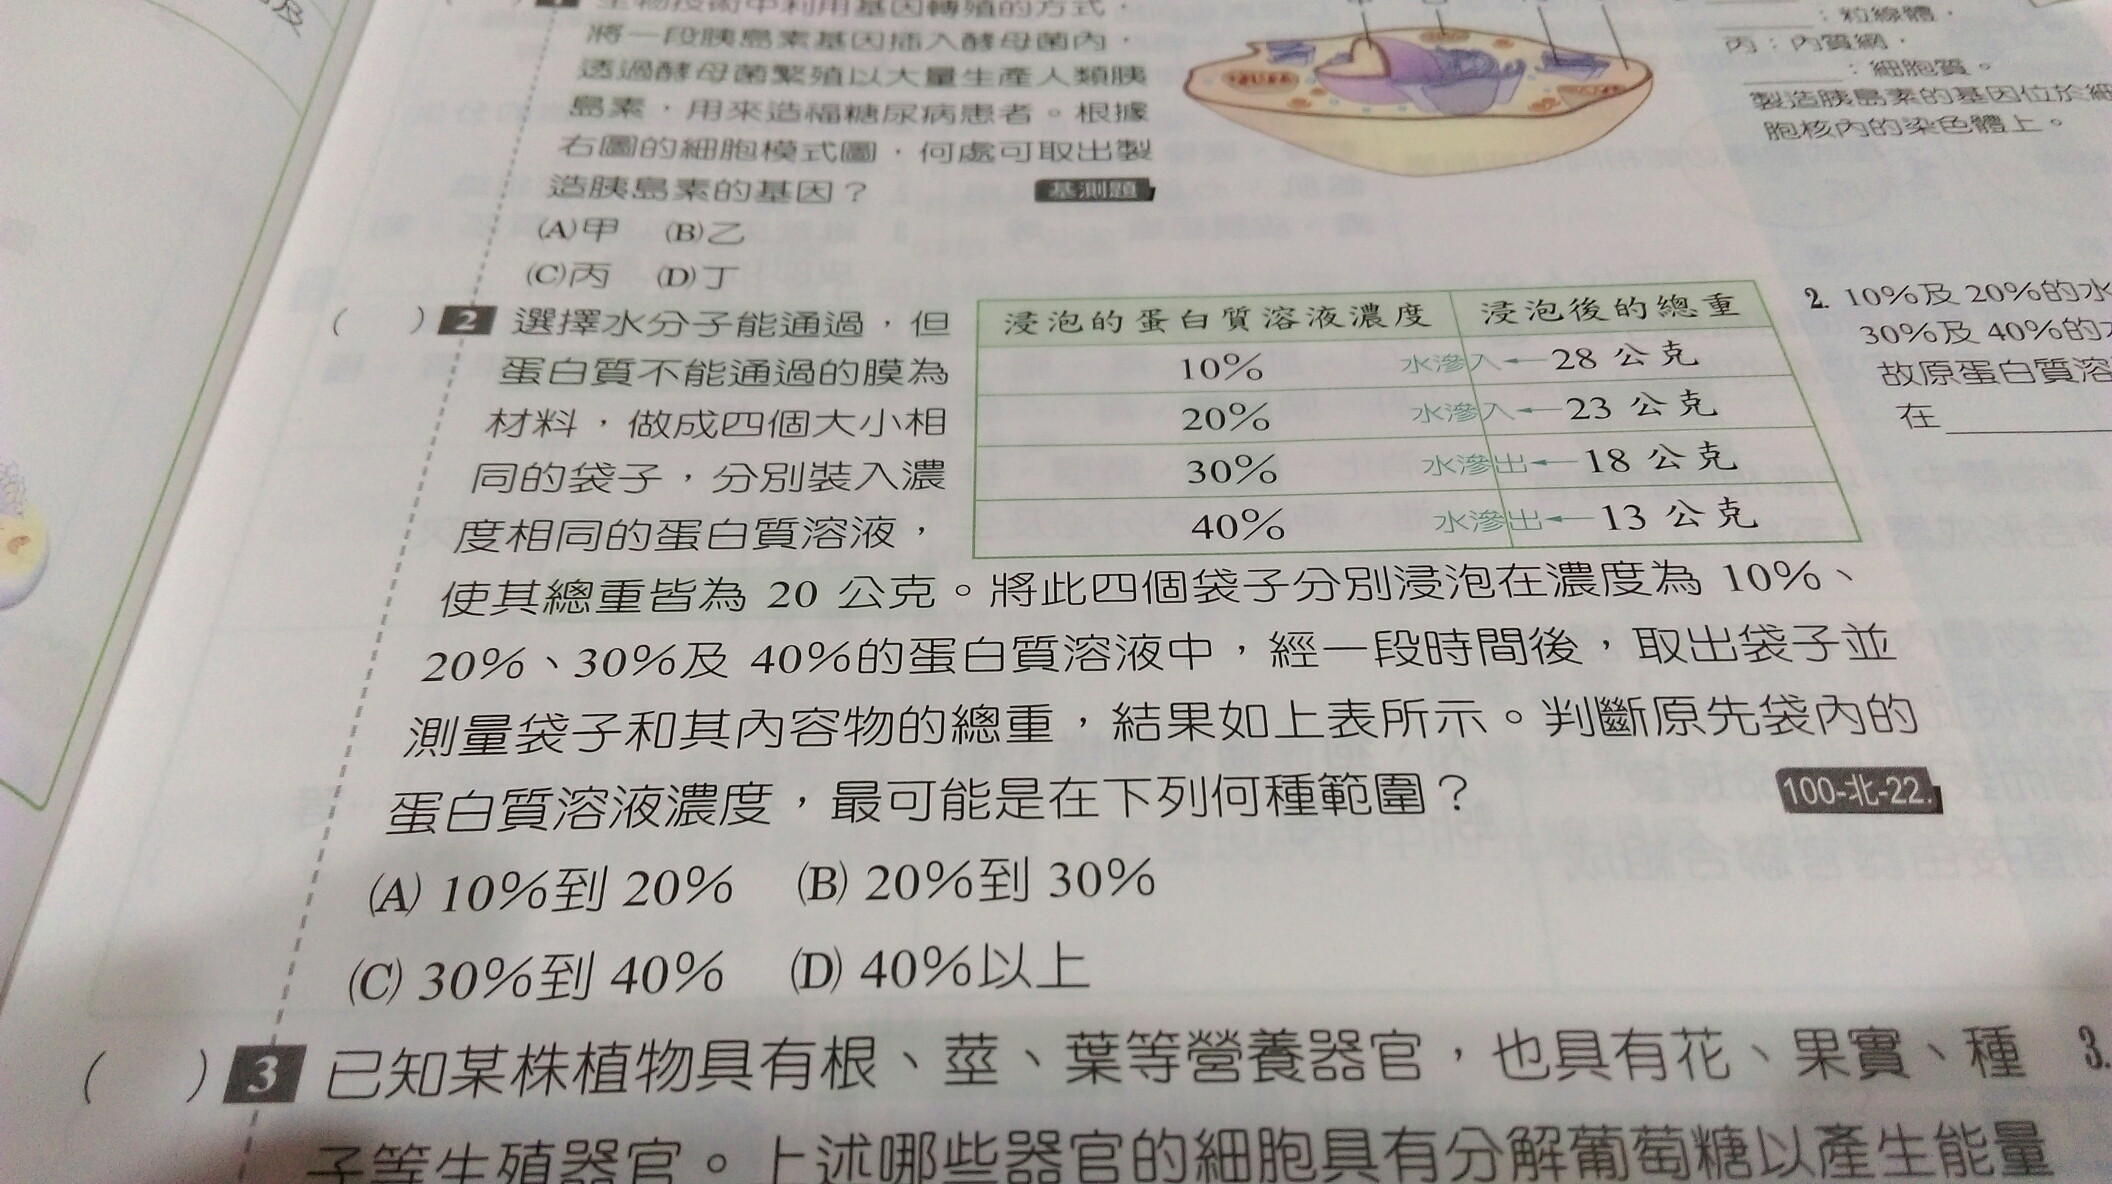 生物技術中利用基因轉殖的方式，
將一段胰島素基因插入酵母菌內，
透過酵母菌繁殖以大量生產人類胰
島素，用來造福糖尿病患者。根據
右圖的細胞模式圖，何處可取出製
造胰島素的基因？ 基測題
(A)甲 (B)乙
(C)丙 (D)丁
：粒線體，
丙：內質網，
：細胞質。
製造胰島素的基因位於細
胞核內的染色體上。
( ) 2 選擇水分子能通過，但
蛋白質不能通過的膜為
材料，做成四個大小相
同的袋子，分別裝入濃
度相同的蛋白質溶液，
浸泡的蛋白質溶液濃度 浸泡後的總重
10% 水滲入←28 公克
20% 水滲入←23 公克
30% 水滲出←18 公克
40% 水滲出←13 公克
使其總重皆為 20 公克。將此四個袋子分別浸泡在濃度為 10%、
20%、30%及 40%的蛋白質溶液中，經一段時間後，取出袋子並
測量袋子和其內容物的總重，結果如上表所示。判斷原先袋內的
蛋白質溶液濃度，最可能是在下列何種範圍？ 100-北-22.
(A) 10%到 20% (B) 20%到 30%
(C) 30%到 40% (D) 40%以上
2. 10%及 20%的水
30%及 40%的
故原蛋白質溶
在
( ) 3 已知某株植物具有根、莖、葉等營養器官，也具有花、果實、種
子等生殖器官。上述哪些器官的細胞具有分解葡萄糖以產生能量
3.